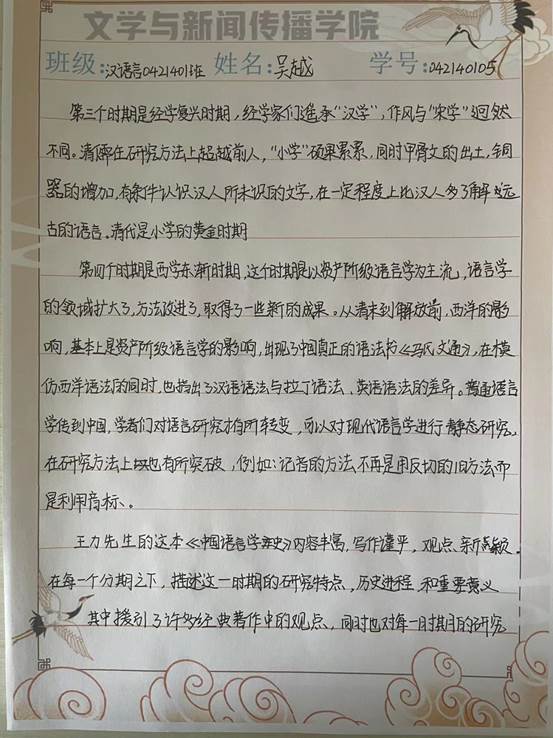 文学与新闻传播学院
班级:汉语言0421401班 姓名:吴越 学号:042140105
第三个时期是经学复兴时期，经学家们遥承“汉学”，作风与“宋学”迥然
不同。清儒在研究方法上超越前人，“小学”硕果累累，同时甲骨文的出土，铜
器的增加，有条件认识汉人所未识的文字，在一定程度上比汉人多了解远
古的语言。清代是小学的黄金时期
第四个时期是西学东渐时期，这个时期是以资产阶级语言学为主流，语言学
的领域扩大了，方法改进了，取得了一些新的成果。从清末到解放前，西洋的影
响，基本上是资产阶级语言学的影响，出现了中国真正的语法书《马氏文通》，在模
仿西洋语法的同时，也指出了汉语语法与拉丁语法、英语语法的差异。普通语言
学传到中国，学者们对语言研究才有所转变，可以对现代语言学进行静态研究。
在研究方法上也有所突破，例如：记音的方法不再是用反切的旧方法而
是利用音标、。
王力先生的这本《中国语言学史》内容丰富，写作谨严，观点新颖。
在每一个分期之下，描述这一时期的研究特点，历史进程，和重要意义
其中援引了许多经典著作中的观点，同时也对每一时期的研究